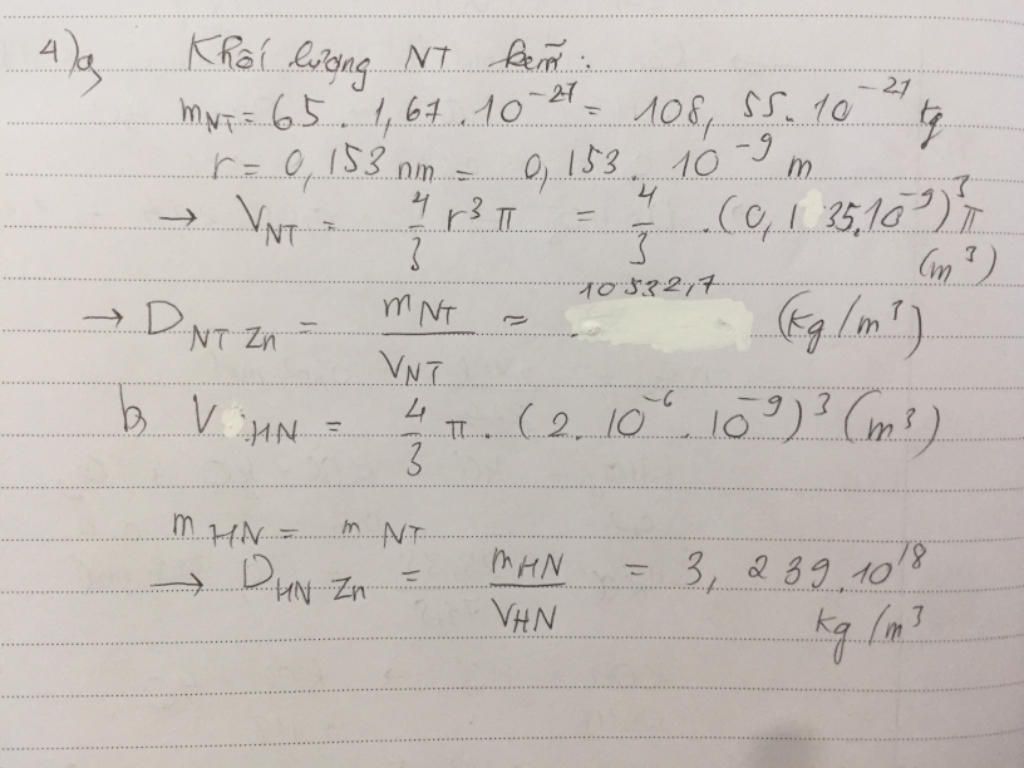 4)a, Khối lượng NT kẽm:
m_NT = 65 . 1,67 . 10^-27 = 108,55 . 10^-27 kg
r = 0,153 nm = 0,153 . 10^-9 m
→ V_NT = 4/3 r³ π = 4/3 . (0,135.10^-9)³ π (m³)
→ D_NT Zn = m_NT / V_NT ≈ 10532,7 (kg/m³)
b, V_HN = 4/3 π . (2 . 10^-6 . 10^-9)³ (m³)
m_HN = m_NT
→ D_HN Zn = m_HN / V_HN = 3,239.10^18 kg/m³